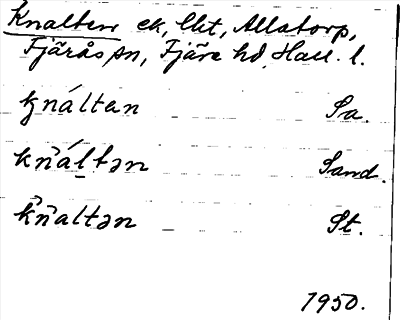 Knalten ek, lht, Allatorp,
Fjärås sn, Fjäre hd, Hall. l.
knáltan Sa.
kn̂áltən Sand.
k̂n̂altən St.
1950.